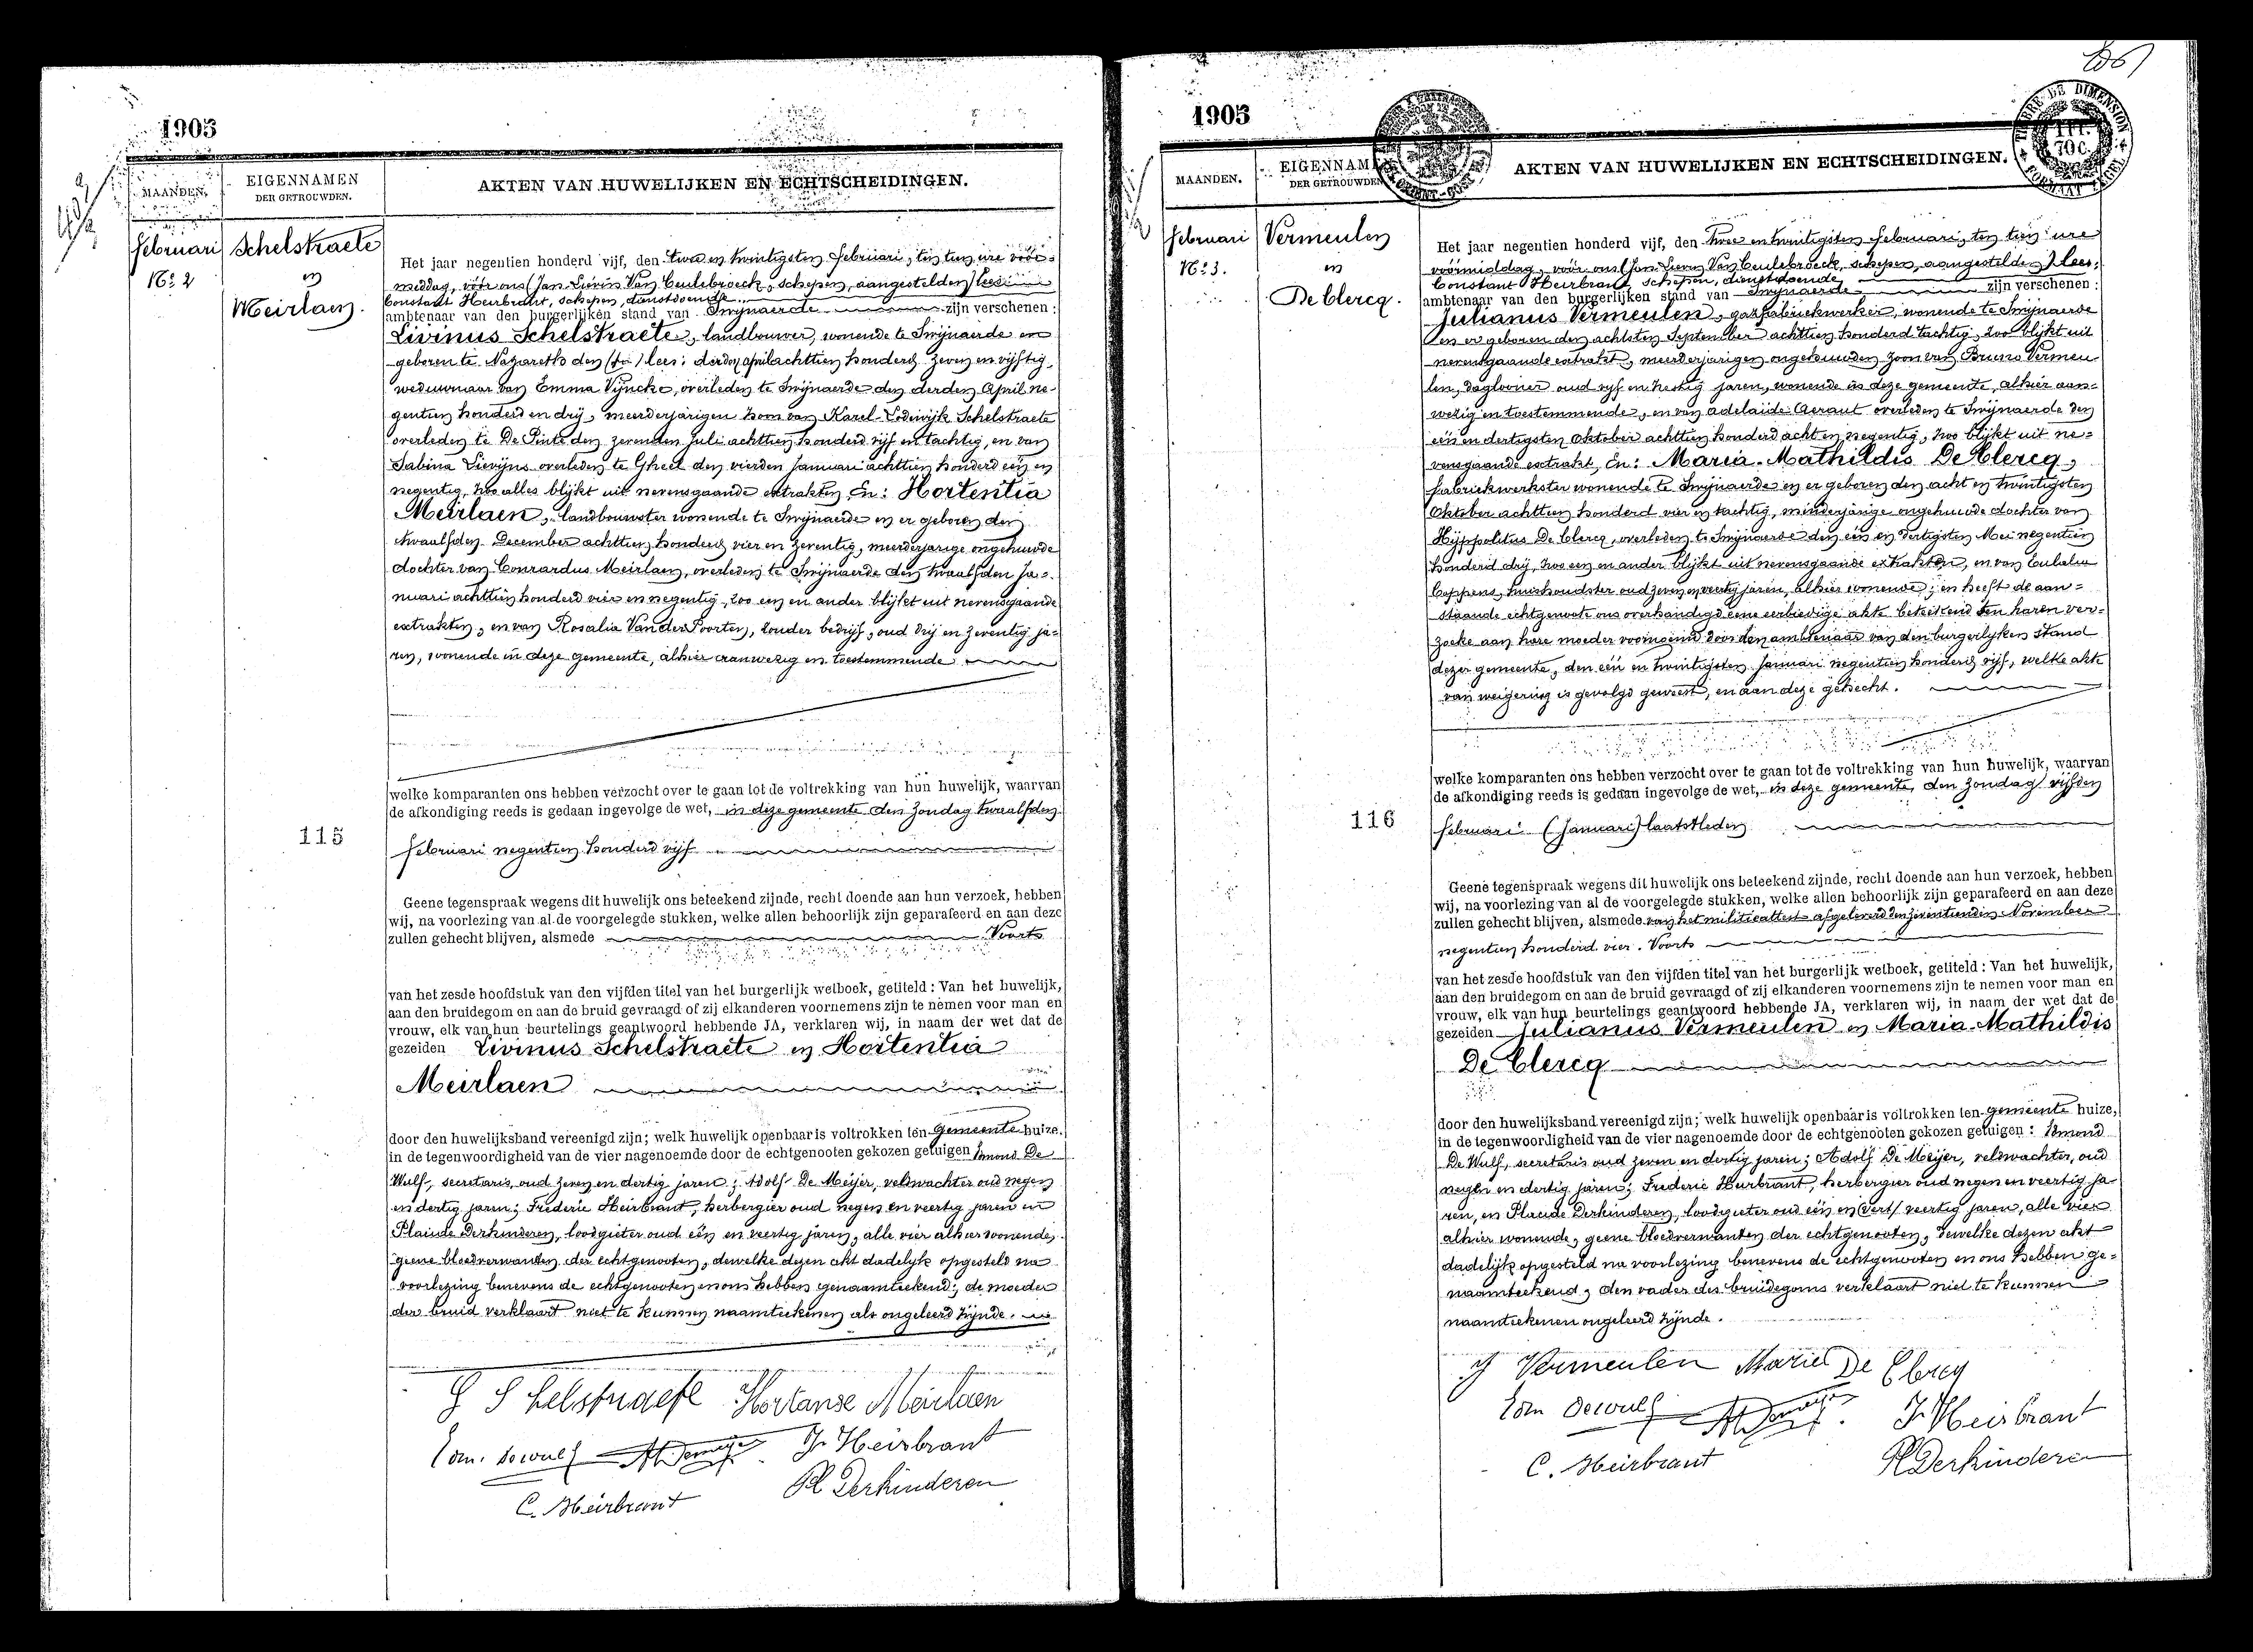 1905
MAANDEN.
EIGENNAMEN
DER GETROUWDEN.
AKTEN VAN HUWELIJKEN EN ECHTSCHEIDINGEN.
februari
Nº 2
Schelstraete
en
Meirlaen.
Het jaar negentien honderd vijf, den twee en twintigsten februari, ten tien ure vóór-
middag, vóór ons (Jan Lievin Van Ceulebroeck, schepen, aangestelden) lees:
Constant Heirbrant, schepen, dienstdoende
ambtenaar van den burgerlijken stand van Swijnaerde zijn verschenen:
Livinus Schelstraete, landbouwer, wonende te Swijnaerde en
geboren te Nazareth den lees: derden april achttien honderd zeven en vijftig,
weduwnaar van Emma Vijncke, overleden te Swijnaerde den derden April ne-
gentien honderd en drij, meerderjarigen zoon van Karel-Lodewijk Schelstraete
overleden te De Pinte den zevenden Juli achttien honderd vijf en tachtig, en van
Sabina Lievijns overleden te Gheel den vierden Januari achttien honderd één en
negentig, zoo alles blijkt uit nevensgaande extrakten. En: Hortentia
Meirlaen, landbouwster wonende te Swijnaerde en er geboren den
twaalfden December achttien honderd vier en zeventig, meerderjarige ongehuwde
dochter van Conrardus Meirlaen, overleden te Swijnaerde den twaalfden Ja-
nuari achttien honderd vier en negentig, zoo een en ander blijkt uit nevensgaande
extrakten, en van Rosalia Van der Poorten, zonder bedrijf, oud drij en zeventig ja-
ren, wonende in deze gemeente, alhier aanwezig en toestemmende
welke komparanten ons hebben verzocht over te gaan tot de voltrekking van hun huwelijk, waarvan
de afkondiging reeds is gedaan ingevolge de wet, in deze gemeente den zondag twaalfden
115
februari negentien honderd vijf
Geene tegenspraak wegens dit huwelijk ons beteekend zijnde, recht doende aan hun verzoek, hebben
wij, na voorlezing van al de voorgelegde stukken, welke allen behoorlijk zijn geparafeerd en aan deze
zullen gehecht blijven, alsmede Voorts
van het zesde hoofdstuk van den vijfden titel van het burgerlijk wetboek, getiteld: Van het huwelijk,
aan den bruidegom en aan de bruid gevraagd of zij elkanderen voornemens zijn te nemen voor man en
vrouw, elk van hun beurtelings geantwoord hebbende JA, verklaren wij, in naam der wet dat de
gezeiden Livinus Schelstraete en Hortentia
Meirlaen
door den huwelijksband vereenigd zijn; welk huwelijk openbaar is voltrokken ten gemeente huize,
in de tegenwoordigheid van de vier nagenoemde door de echtgenooten gekozen getuigen Edmond De
Wulf, secretaris, oud zeven en dertig jaren; Adolf De Meijer, veldwachter oud negen
en dertig jaren; Frederic Heirbrant, herbergier oud negen en veertig jaren en
Placide Derkinderen, loodgieter oud één en veertig jaren, alle vier alhier wonende,
geene bloedverwanten der echtgenooten, dewelke dezen akt dadelijk opgesteld na
voorlezing benevens de echtgenooten en ons hebben genaamteekend; de moeder
der bruid verklaart niet te kunnen naamteekenen als ongeleerd zijnde.
Schelstraete Hortanse Meirlaen
Edm. Dewulf Ad Demeyer Fr Heirbrant
C. Heirbrant Pl Derkinderen
1905
MAANDEN.
EIGENNAMEN
DER GETROUWDEN
AKTEN VAN HUWELIJKEN EN ECHTSCHEIDINGEN.
TIMBRE DE DIMENSION
februari
Nº 3.
Vermeulen
en
De Clercq.
Het jaar negentien honderd vijf, den twee en twintigsten februari, ten tien ure
vóórmiddag, vóór ons (Jan Lievin Van Ceulebroeck, schepen, aangestelden) lees:
Constant Heirbrant, schepen, dienstdoende
ambtenaar van den burgerlijken stand van Swijnaerde zijn verschenen:
Julianus Vermeulen, gazfabriekwerker, wonende te Swijnaerde
en er geboren den achtsten September achttien honderd tachtig, zoo blijkt uit
nevensgaande extrakt, meerderjarigen ongehuwden zoon van Bruno Vermeu
len, daglooner oud vijf en zestig jaren, wonende in deze gemeente, alhier aan-
wezig en toestemmende, en van Adelaide Geraut overleden te Swijnaerde den
één en dertigsten Oktober achttien honderd acht en negentig, zoo blijkt uit ne-
vensgaande extrakt, En: Maria-Mathildis De Clercq,
fabriekwerkster wonende te Swijnaerde en er geboren den acht en twintigsten
Oktober achttien honderd vier en tachtig, minderjarige ongehuwde dochter van
Hijppolitus De Clercq, overleden te Swijnaerde den één en dertigsten Mei negentien
honderd drij, zoo een en ander blijkt uit nevensgaande extrakten, en van Eulalia
Coppens, huishoudster oud zeven en veertig jaren, alhier wonende; en heeft de aan-
staande echtgenoote ons overhandigd eene eerbiedige akte beteekend ten haren ver-
zoeke aan hare moeder voornoemd door den ambtenaar van den burgerlijken stand
dezer gemeente, den één en twintigsten Januari negentien honderd vijf, welke akte
van weigering is gevolgd geweest, en aan deze gehecht.
welke komparanten ons hebben verzocht over te gaan tot de voltrekking van hun huwelijk, waarvan
de afkondiging reeds is gedaan ingevolge de wet, in deze gemeente, den zondag vijfden
116
februari (Januari) laatstleden
Geene tegenspraak wegens dit huwelijk ons beteekend zijnde, recht doende aan hun verzoek, hebben
wij, na voorlezing van al de voorgelegde stukken, welke allen behoorlijk zijn geparafeerd en aan deze
zullen gehecht blijven, alsmede van het militieattest afgeleverd den zeventienden November
negentien honderd vier. Voorts
van het zesde hoofdstuk van den vijfden titel van het burgerlijk wetboek, getiteld: Van het huwelijk,
aan den bruidegom en aan de bruid gevraagd of zij elkanderen voornemens zijn te nemen voor man en
vrouw, elk van hun beurtelings geantwoord hebbende JA, verklaren wij, in naam der wet dat de
gezeiden Julianus Vermeulen en Maria-Mathildis
De Clercq
door den huwelijksband vereenigd zijn; welk huwelijk openbaar is voltrokken ten gemeente huize,
in de tegenwoordigheid van de vier nagenoemde door de echtgenooten gekozen getuigen: Edmond
De Wulf, secretaris oud zeven en dertig jaren; Adolf De Meijer, veldwachter, oud
negen en dertig jaren; Frederic Heirbrant, herbergier oud negen en veertig ja
ren, en Placide Derkinderen, loodgieter oud één en (vert) veertig jaren, alle vier
alhier wonende, geene bloedverwanten der echtgenooten, dewelke dezen akt
dadelijk opgesteld na voorlezing benevens de echtgenooten en ons hebben ge-
naamteekend, den vader des bruidegoms verklaart niet te kunnen
naamteekenen ongeleerd zijnde.
J Vermeulen Marie De Clercq
Edm Dewulf Ad Demeyer Fr Heirbrant
C. Heirbrant Pl Derkinderen